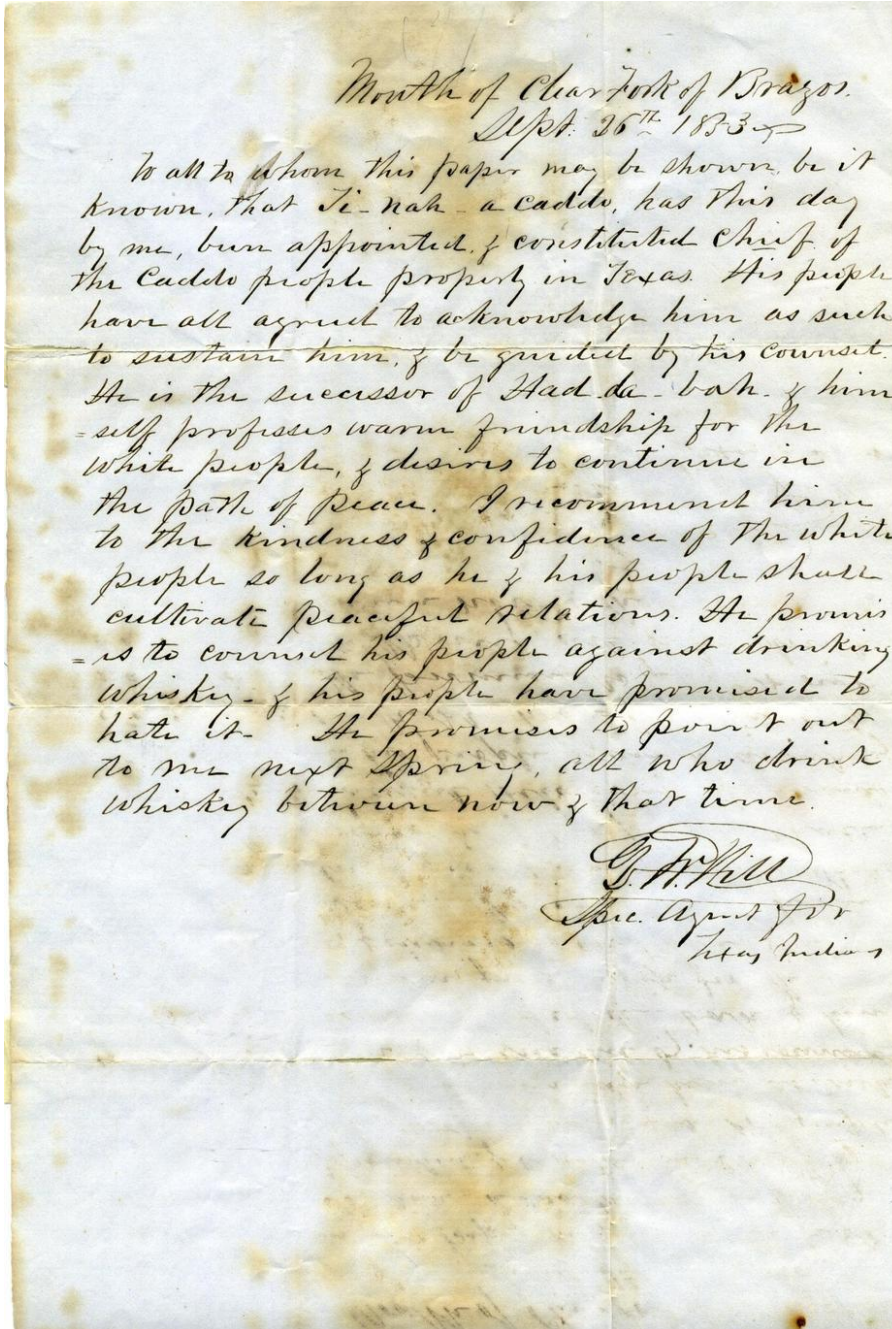 Mouth of Clear Fork of Brazos.
Sept. 26th 1853
To all to whom this paper may be shown, be it
known, that Ti-nah - a Caddo, has this day
by me, been appointed, & constituted Chief of
the Caddo people properly in Texas. His people
have all agreed to acknowledge him as such
to sustain him, & be guided by his counsel.
He is the successor of Had-da-bah. & him
=self professes warm friendship for the
white people, & desires to continue in
the path of peace. I recommend him
to the kindness & confidence of the white
people so long as he & his people shall
cultivate peaceful relations. He promis
=es to counsel his people against drinking
whiskey - & his people have promised to
hate it - He promises to point out
to me next Spring, all who drink
whiskey between now & that time.
G. W. Hill
Spec. Agent for
Texas Indians